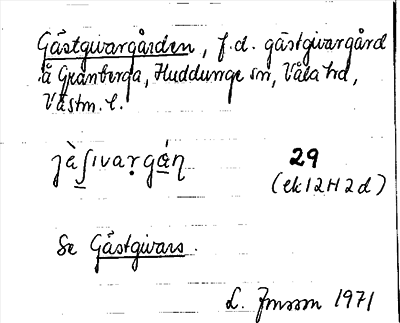 Gästgivargården, f.d. gästgivargård
å Granberga, Huddunge sn, Våla hd,
Västm. l.
29
(ek 12H2d)
Se Gästgivars.
1971